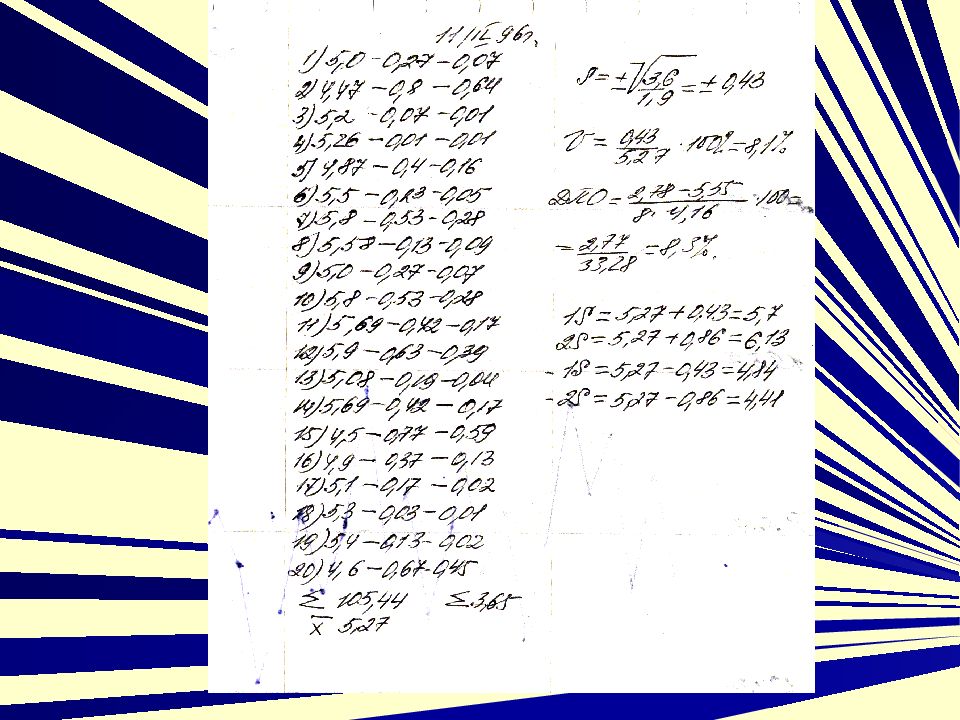 11/IX 96г.
1) 5,0 - 0,27 - 0,07
2) 4,47 - 0,8 - 0,64
3) 5,2 - 0,07 - 0,01
4) 5,26 - 0,01 - 0,01
5) 4,87 - 0,4 - 0,16
6) 5,5 - 0,23 - 0,05
7) 5,8 - 0,53 - 0,28
8) 5,58 - 0,13 - 0,09
9) 5,0 - 0,27 - 0,07
10) 5,8 - 0,53 - 0,28
11) 5,69 - 0,42 - 0,17
12) 5,9 - 0,63 - 0,39
13) 5,08 - 0,19 - 0,04
14) 5,69 - 0,42 - 0,17
15) 4,5 - 0,77 - 0,59
16) 4,9 - 0,37 - 0,13
17) 5,1 - 0,17 - 0,02
18) 5,3 - 0,03 - 0,01
19) 5,4 - 0,13 - 0,02
20) 4,6 - 0,67 - 0,45
Σ 105,44 Σ 3,65
x̅ 5,27
S = ±√3,6/1,9 = ± 0,43
V = 0,43/5,27 · 100% = 8,1%
ДПО = 2,78 - 5,55/8 · 4,16 · 100 =
= 2,77/33,28 = 8,3%.
1S = 5,27 + 0,43 = 5,7
2S = 5,27 + 0,86 = 6,13
- 1S = 5,27 - 0,43 = 4,84
- 2S = 5,27 - 0,86 = 4,41